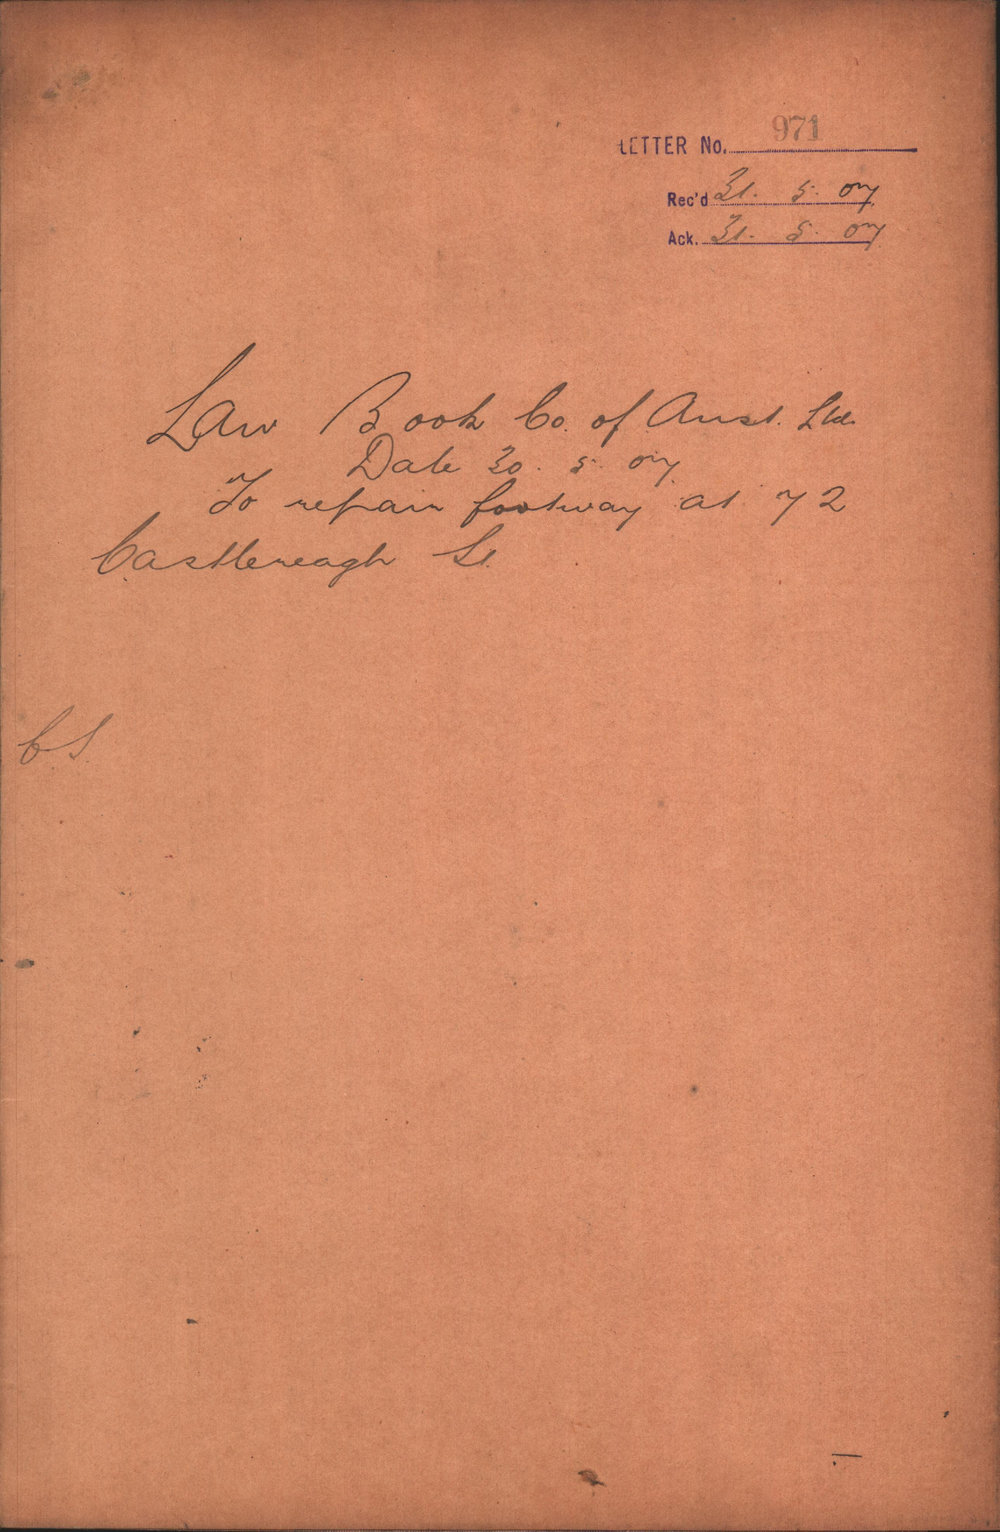 LETTER No. 971
Rec'd 31. 5. 07
Ack. 31. 5. 07
Law Book Co. of Aust. Ltd.
Date 30. 5. 07
To repair footway at 72
Castlereagh St.
CS